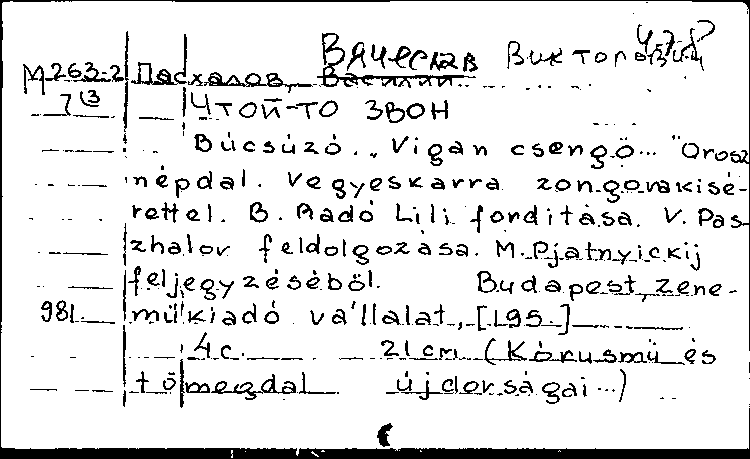 Вячеслав Викторович
М263-2 Пасхалов, Василий
7/3 Чтой-то звон
Búcsúzó. „Vigan csengő... "Orosz
népdal. Vegyeskarra zongorakisé-
rettel. B. Radó Lili forditása. V. Pas-
zhalov feldolgozása. M. Pjatnyickij
feljegyzéséböl. Budapest, zene-
981. műkiadó vállalat, [195.]
4c. 21cm (Kórusmű és
tömegdal újdorságai...)